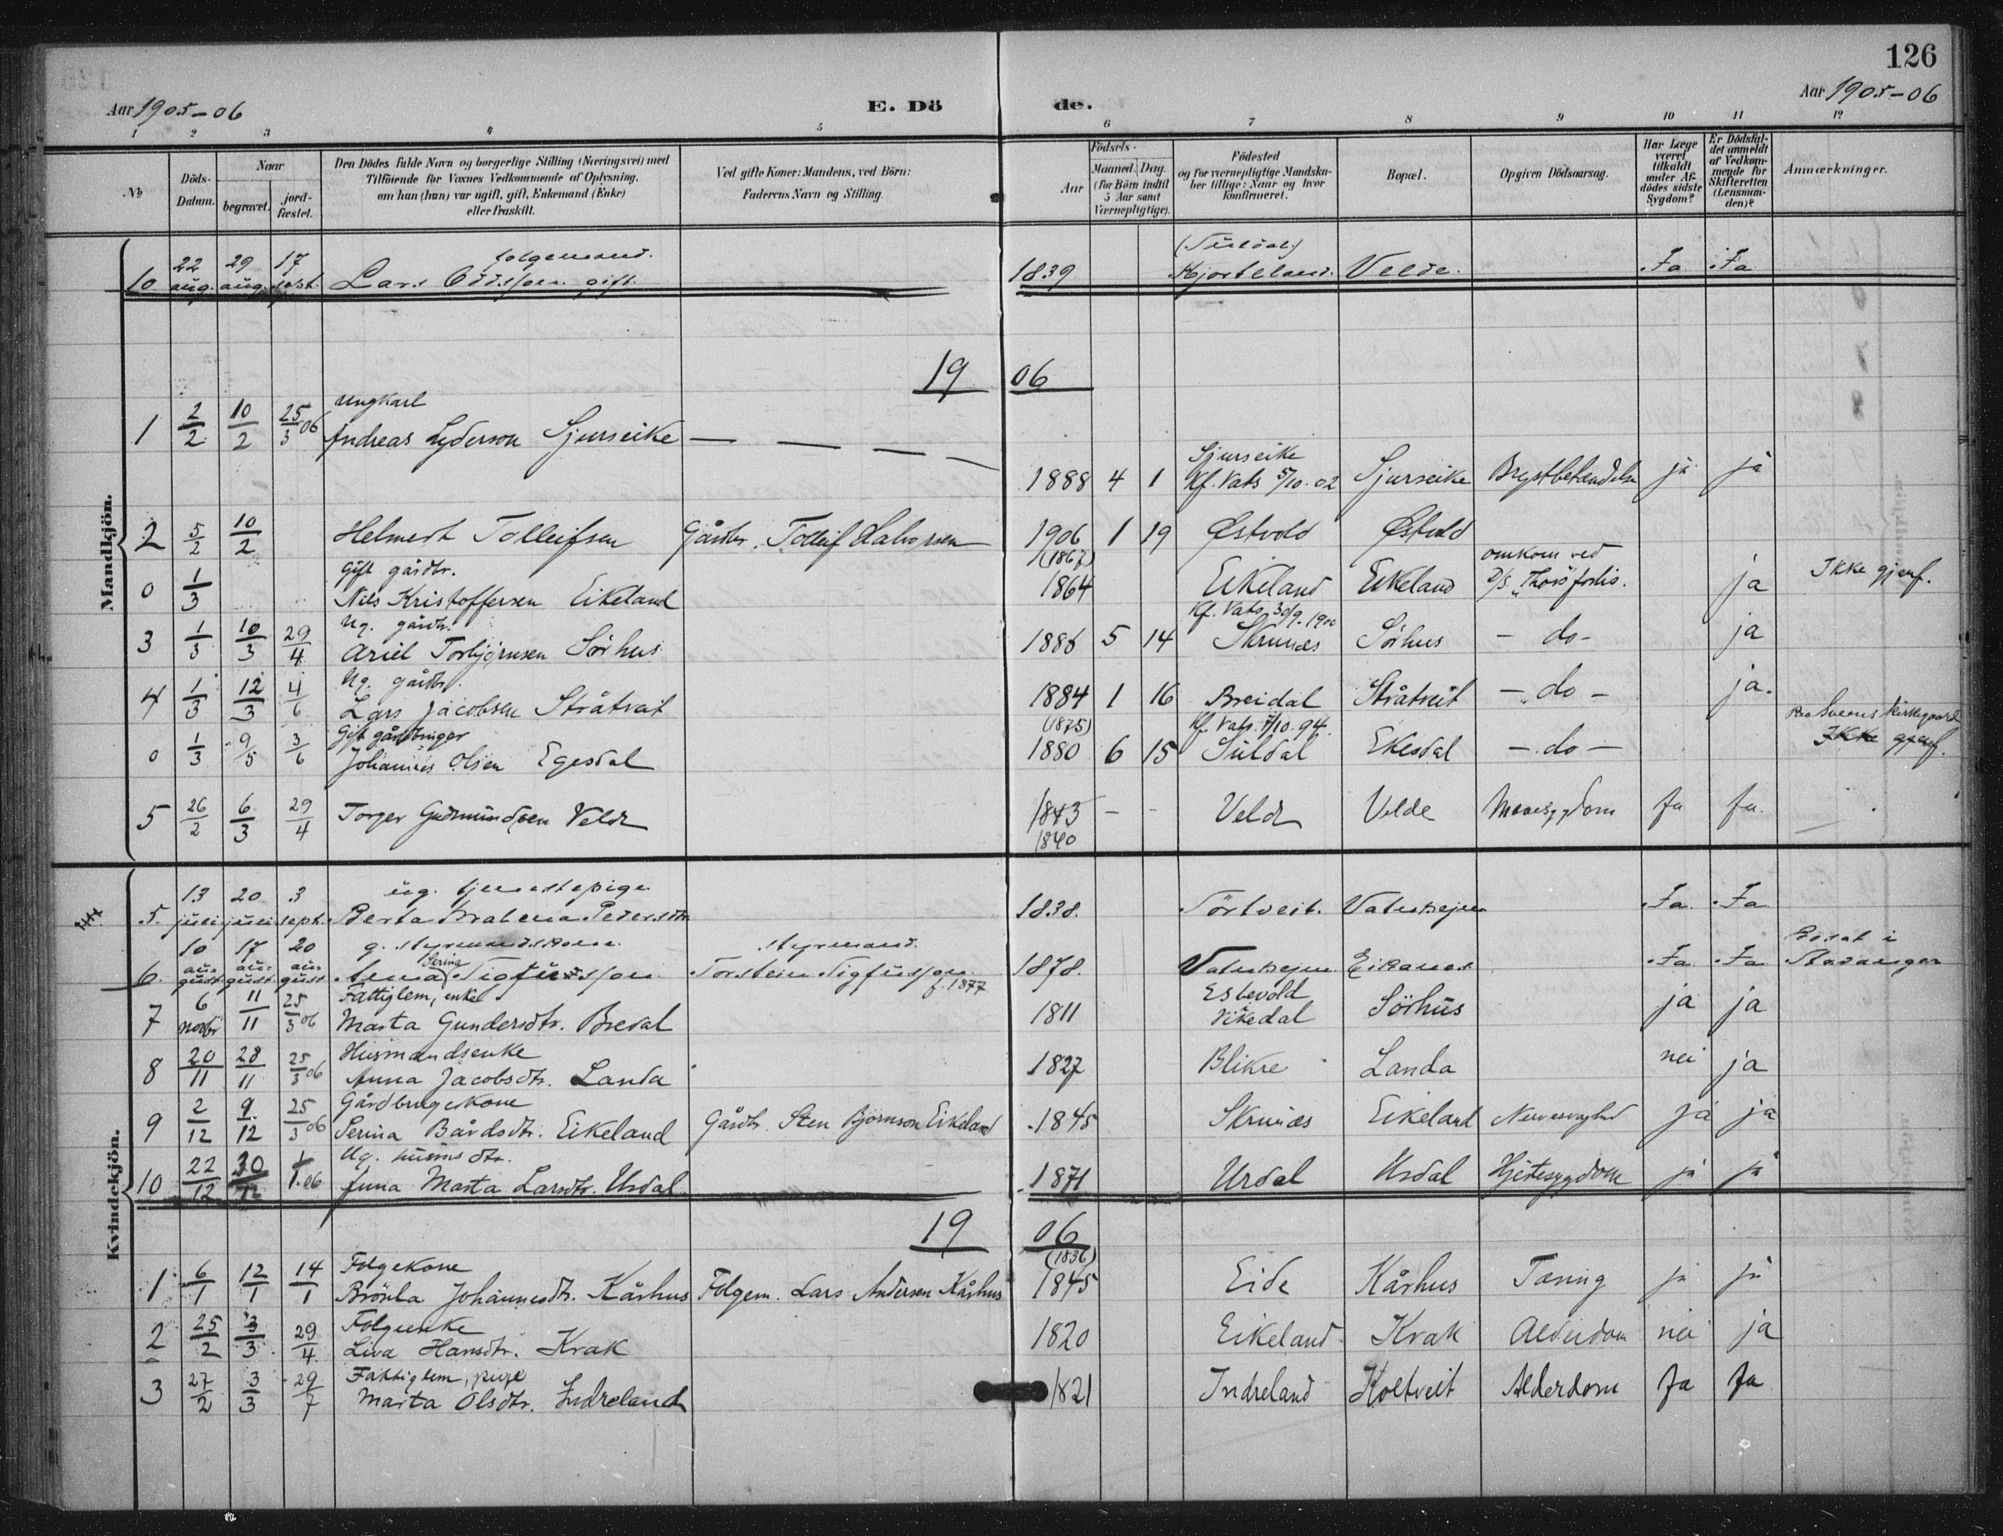 126
Aar 1905-06 E. Dö de. Aar 1905-06
1 2 3 4 5 6 7 8 9 10 11 12
№ Döds-Datum. Naar begravet. jordfæstet. Den Dödes fulde Navn og borgerlige Stilling (Næringsvei) med Tilföiende for Voxnes Vedkommende af Oplysning, om han (hun) var ugift, gift, Enkemand (Enke) eller fraskilt. Ved gifte Koner: Mandens, ved Börn: Faderens Navn og Stilling. Födsels- Aar Maaned. Dag. (for Börn indtil 5 Aar samt Værnepligtige). Födested og for værnepligtige Mandskaber tillige: Naar og hvor konfirmeret. Bopæl. Opgiven Dödsaarsag. Har Læge været tilkaldt under Afdödes sidste Sygdom? Er Dödsfaldet anmeldt af Vedkommende for Skifteretten (Lensmanden)? Anmærkninger.
Mandkjön.
folgemand. (Suldal)
10 22 aug. 29 aug. 17 sept. Lars Oddsson gift. 1839 Kjorteland. Velde. Ja Ja
19 06
ungkarl
1 2/2 10/2 25/3 06 Andreas Lyderson Sjurseike — — — —
Sjurseike
1888 4 1 Kf. Vats 5/10.02 Sjurseike Brystbetændelse ja ja
2 5/2 10/2 Helmest Tolleifsen Gårdbr. Tolleif Halvorsen 1906 1 19 Østvold Østvold
Gift gårdbr. (1867) omkom ved
0 1/3 Nils Kristoffersen Eikeland 1864 Eikeland Eikeland D/S "Thors" forlis. ja Ikke gjenf.
Ug. gårdbr. Kf. Vats 30/9.1900
3 1/3 10/3 29/4 Ariel Torbjørnsen Sörhus 1886 5 14 Skrunes Sörhus - do- ja
Ug. gårdbr.
4 1/3 12/3 4/6 Lars Jacobsen Stråtveit 1884 1 16 Breidal Stråtveit - do - ja.
Gift gårdbruger (1875) Kf. Vats. 7/10.94. Kirkegaard
0 1/3 9/5 3/6 Johannes Olsen Egesdal 1880 6 15 Suldal Ekesdal - do - Ikke gjenf.
5 26/2 6/3 29/4 Torger Gudmundsen Velde 1843 - - Velde Velde Mavesygdom Ja Ja
1840
Kvindekjön.
ug. tjenestepige
5. 13 juli 20 juli 3 sept. Berta Malena Pedersdtr 1838. Törtveit. Vatskejen Ja Ja
g. styrmandskone. styrmand. Bosat i
6. 10 august 17 august 20 august Anna Serina Sigfusson Torstein Sigfusson f. 1877 1878. Vatskejen Eikanes Ja Ja Stavanger
Fattiglem, enke Esbevold
7 6 novbr 11/11 25/3 06 Marta Gundersdtr. Bredal 1811 Vikedal Sörhus ja ja
Husmandsenke
8 20/11 28/11 25/3 06 Anna Jacobsdtr. Landa 1827 Blikre Landa nei ja
Gårdbrugerkone
9 2/12 9/12 25/3 06 Serina Bårdsdtr. Eikeland Gårdbr. Sten Bjørnson Eikeland 1845 Skrunes Eikeland Nervesvaghed ja ja
Ug. husmdtr.
10 22/12 30/12 1/1.06 Anna Marta Larsdtr. Urdal 1871 Urdal Urdal Hjertesygdom ja ja
19 06
Folgekone (1836)
1 6/1 12/1 14/1 Brönla Johannesdtr. Kårhus Folgem. Lars Andersen Kårhus 1845 Eide Kårhus Tæring ja ja
Folgeenke
2 25/2 3/3 29/4 Liva Hansdtr. Krak 1820 Eikeland Krak Alderdom nei ja
Fattiglem, pige
3 27/2 3/3 29/7 Marta Olsdtr. Indreland 1821 Indreland Koltveit Alderdom Ja Ja